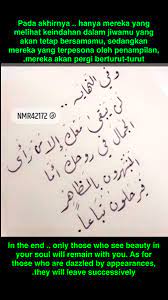 Pada akhirnya .. hanya mereka yang
melihat keindahan dalam jiwamu yang
akan tetap bersamamu, sedangkan
mereka yang terpesona oleh penampilan,
.mereka akan pergi berturut-turut
وفي النهاية ..
لن يبقى معك إلا من رأى
NMR42172 @
الجمال في روحك أما
المنبهرون بالمظاهر
فيرحلون تباعاً.
In the end .. only those who see beauty in
your soul will remain with you. As for
those who are dazzled by appearances,
.they will leave successively